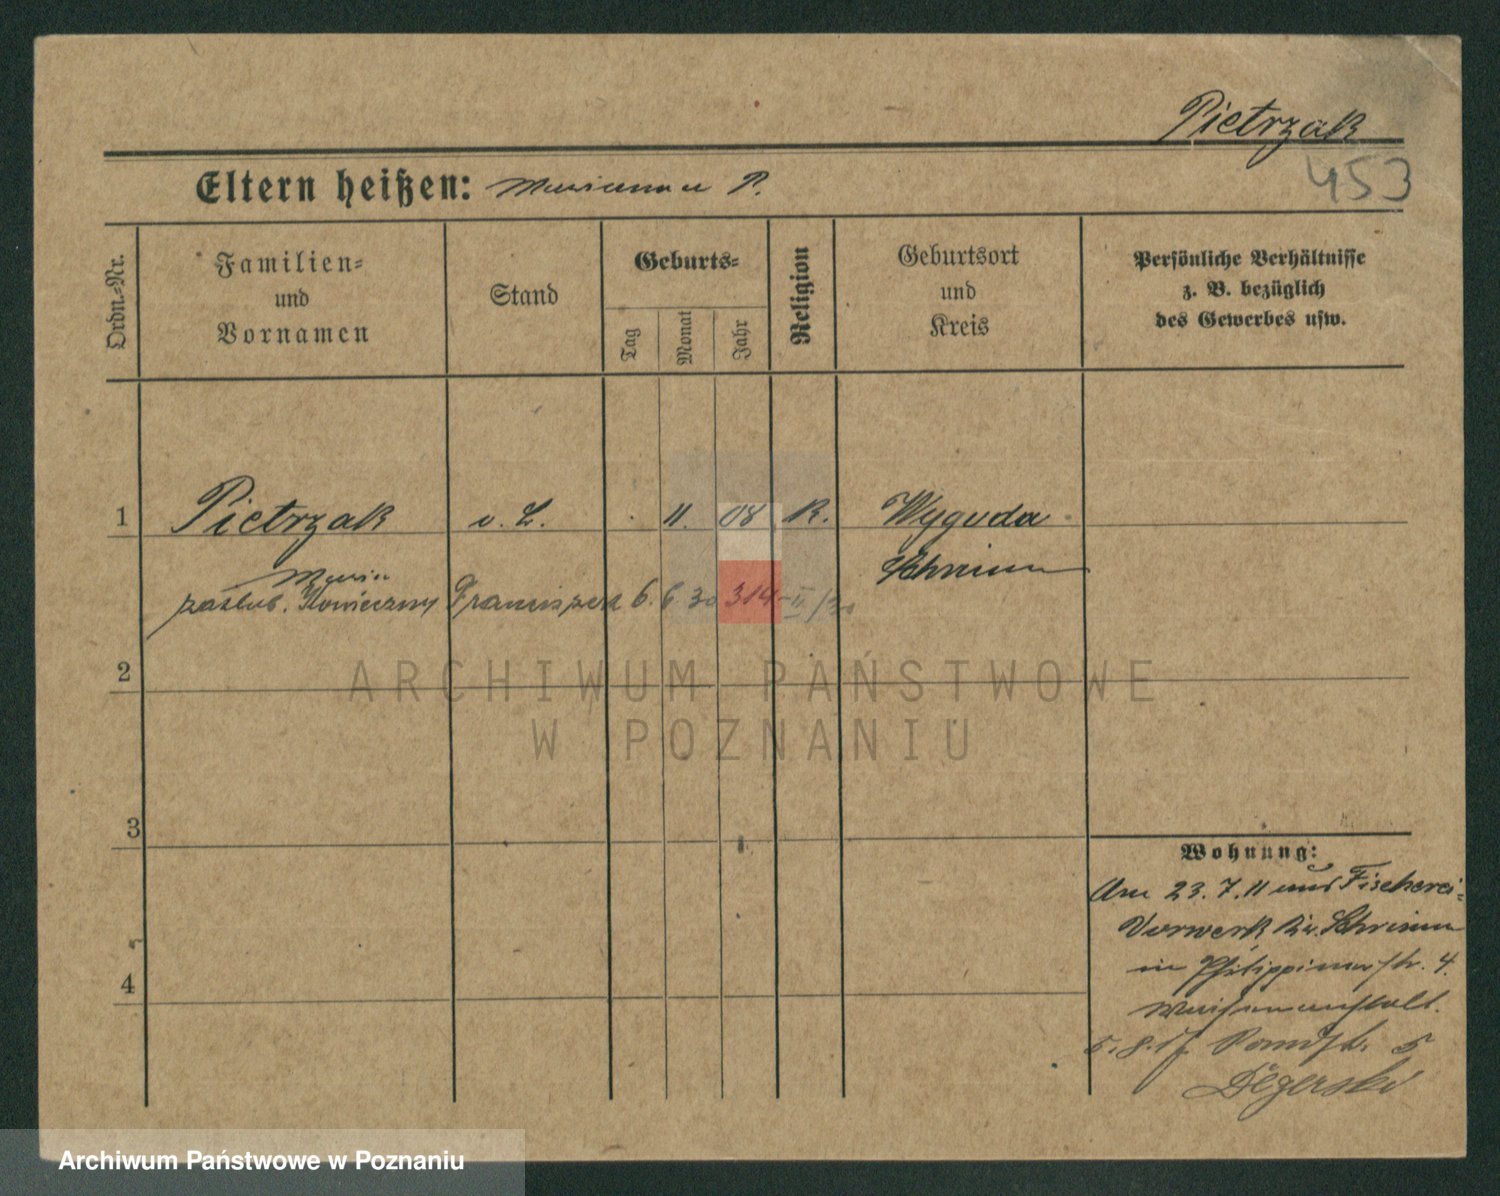 Pietrzak
453
Eltern heißen: Marianna P.
Ordn.-Nr.
Familien-
und
Vornamen
Stand
Geburts-
Tag
Monat
Jahr
Religion
Geburtsort
und
Kreis
Persönliche Verhältnisse
z. B. bezüglich
des Gewerbes usw.
1 Pietrzak o. L. 11. 08 K. Wygoda
Maria Schrimm
zaślub. Konieczny Franciszek 6. 6 30 314-II/30
2
3
4
ARCHIWUM PAŃSTWOWE
W POZNANIU
Wohnung:
Am 23. 7. 11 aus Fischerei-
Vorwerk Kr. Schrimm
in Philippinenstr. 4.
Waisenanstalt.
5. 8. 17
Degerski
Archiwum Państwowe w Poznaniu